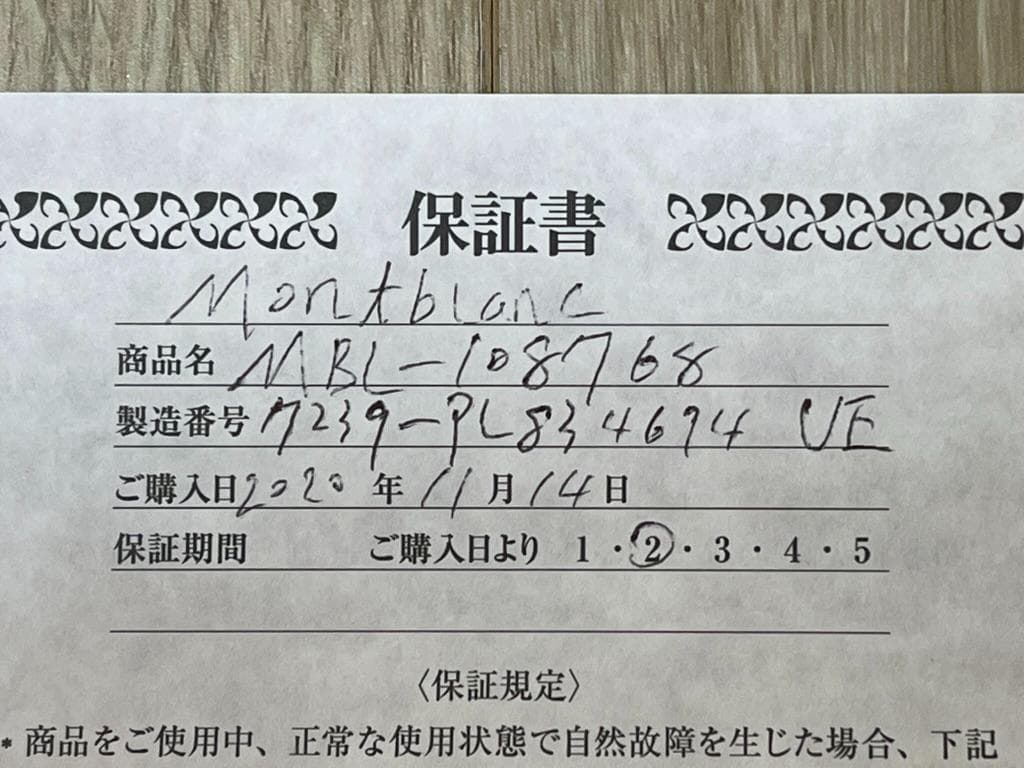 保証書
Montblanc
商品名 MBL-108768
製造番号 7239-PL834694 UE
ご購入日 2020 年 11 月 14 日
保証期間 ご購入日より 1・2・3・4・5
〈保証規定〉
* 商品をご使用中、正常な使用状態で自然故障を生じた場合、下記